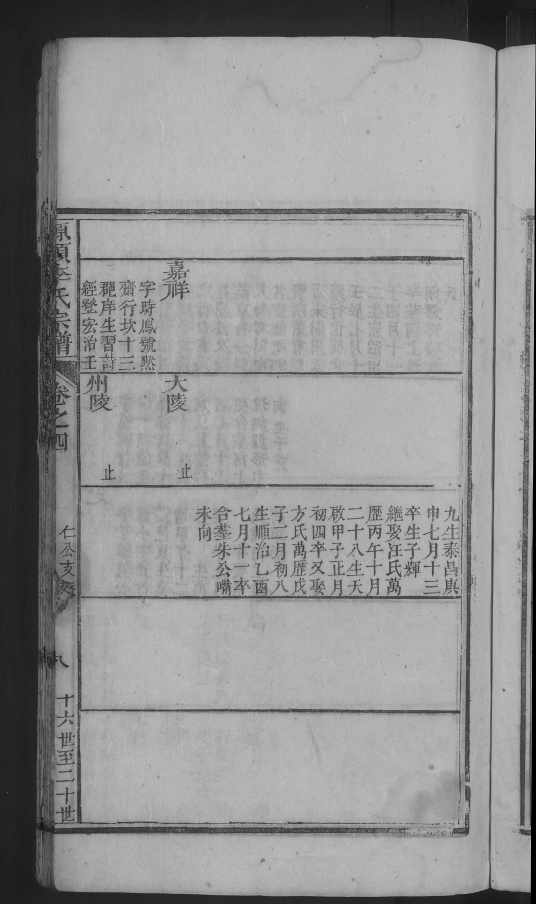 九生泰昌庚
申七月十三
卒生子輝
繼娶汪氏萬
歷丙午十月
二十八生天
啟甲子正月
初四卒又娶
方氏萬歷戊
子二月初八
生順治乙酉
七月十一卒
合墓朱公嘴
未向
嘉祥
字時鳳號㷊
齋行坎十三
庠生習詩
經登宏治壬
大陵
止
州陵
止
氏宗譜
卷之四
仁公支
八
十六世至二十世